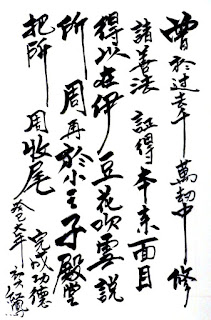 曾於过去千萬劫中修
諸善法 証得本來面目
得以在伊豆花吹雲説
所 周再於小王子殿堂
把所 周收尾
完成功德